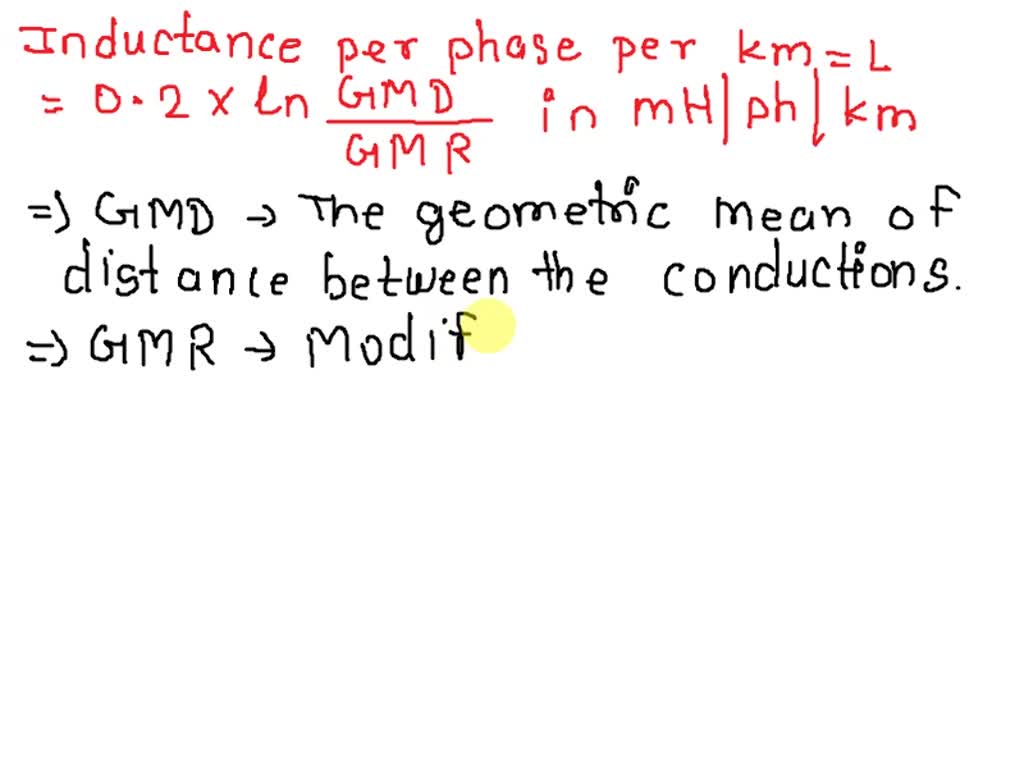 Inductance per phase per km = L
= 0.2 × ln GMD/GMR in mH/ph/km
⇒ GMD → The geometric mean of
distance between the conductions.
⇒ GMR → Modif